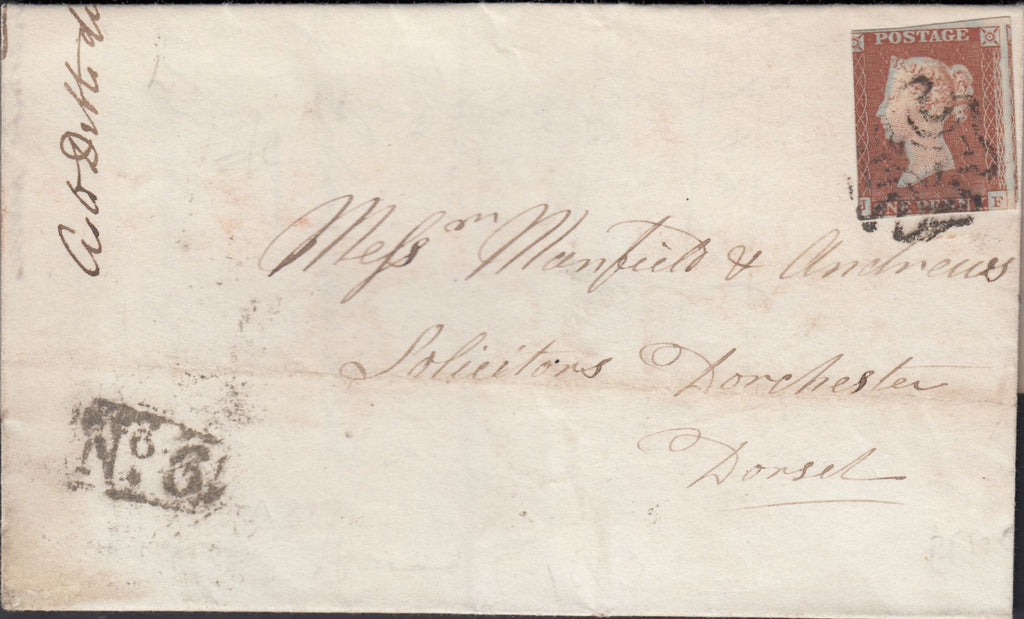 POSTAGE
ONE PENNY
I F
Messrs Manfield & Andrews
Solicitors Dorchester
Dorset
No. 6